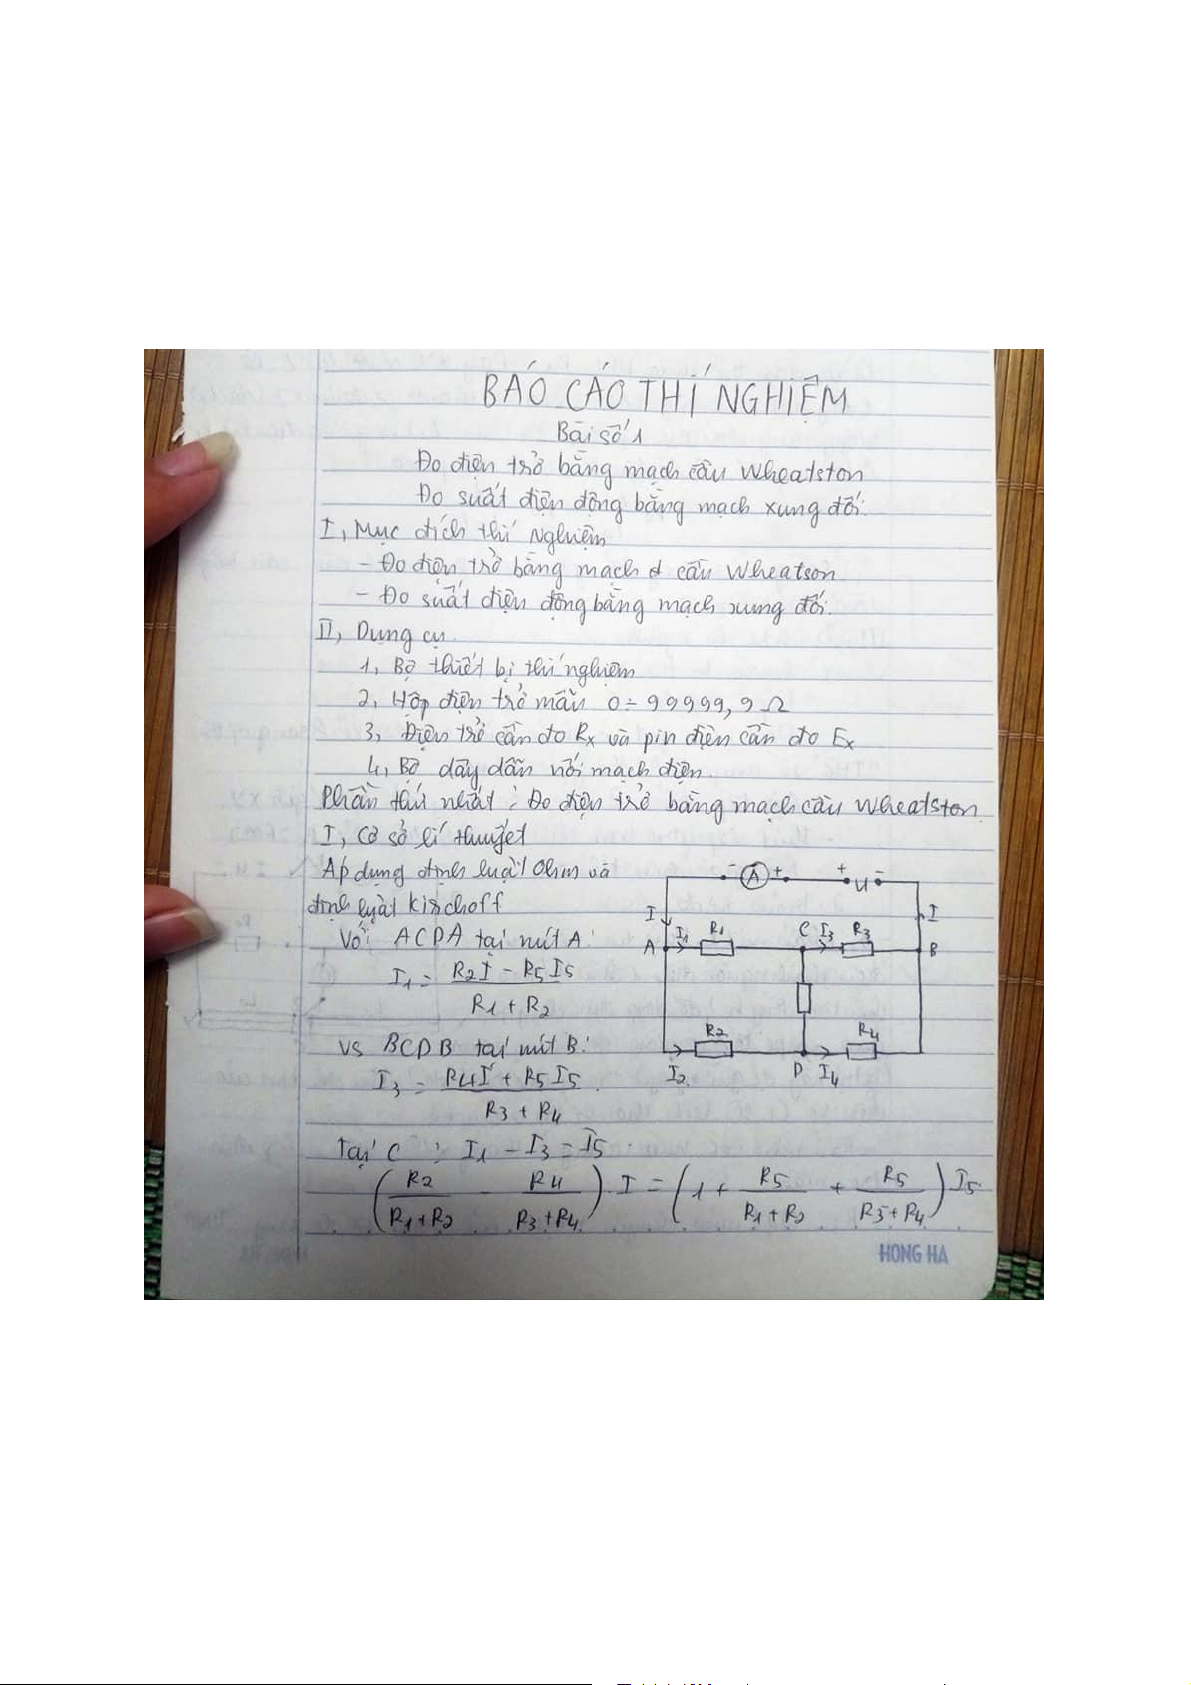 BÁO CÁO THÍ NGHIỆM
Bài số 1
Đo điện trở bằng mạch cầu Wheatston
Đo suất điện động bằng mạch xung đối.
I, Mục đích thí nghiệm
- Đo điện trở bằng mạch d cầu Wheatson
- Đo suất điện động bằng mạch xung đối.
II, Dụng cụ.
1, Bộ thiết bị thí nghiệm
2, Hộp điện trở mẫu 0 ÷ 99999,9 Ω
3, Điện trở cần đo Rx và pin điện cần đo Ex
4, Bộ dây dẫn nối mạch điện.
Phần thứ nhất : Đo điện trở bằng mạch cầu Wheatston.
I, Cơ sở lí thuyết
Áp dụng định luật Ohm và
định luật Kirchoff
Với ACDA tại nút A:
I1 = (R2I - R5I5) / (R1 + R2)
Vs BCDB tại nút B:
I3 = (R4I + R5I5) / (R3 + R4)
Tại C : I1 - I3 = I5
(R2/(R1+R2) - R4/(R3+R4)) . I = (1 + R5/(R1+R2) + R5/(R3+R4)) I5
- A + + U -
I I
A I1 R1 C I3 R3 B
R2 R4
I2 D I4
HONG HA